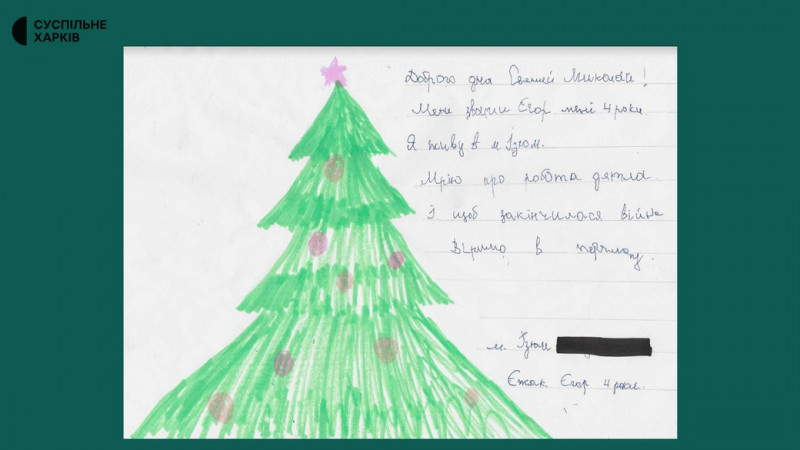 СУСПІЛЬНЕ
ХАРКІВ
Доброго дня Святий Миколай!
Мене звати Єгор мені 4 роки
Я живу в м Ізюм.
Мрію про робота дятла
І щоб закінчилася війна
Віримо в перемогу.
м. Ізюм
Єгор 4 роки.